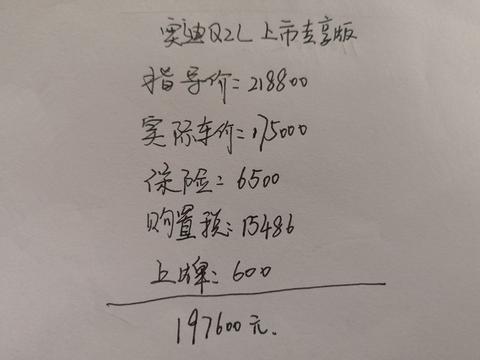 奥迪Q2L上市专享版
指导价=218800
实际车价=175000
保险=6500
购置税:15486
上牌:600
197600元.